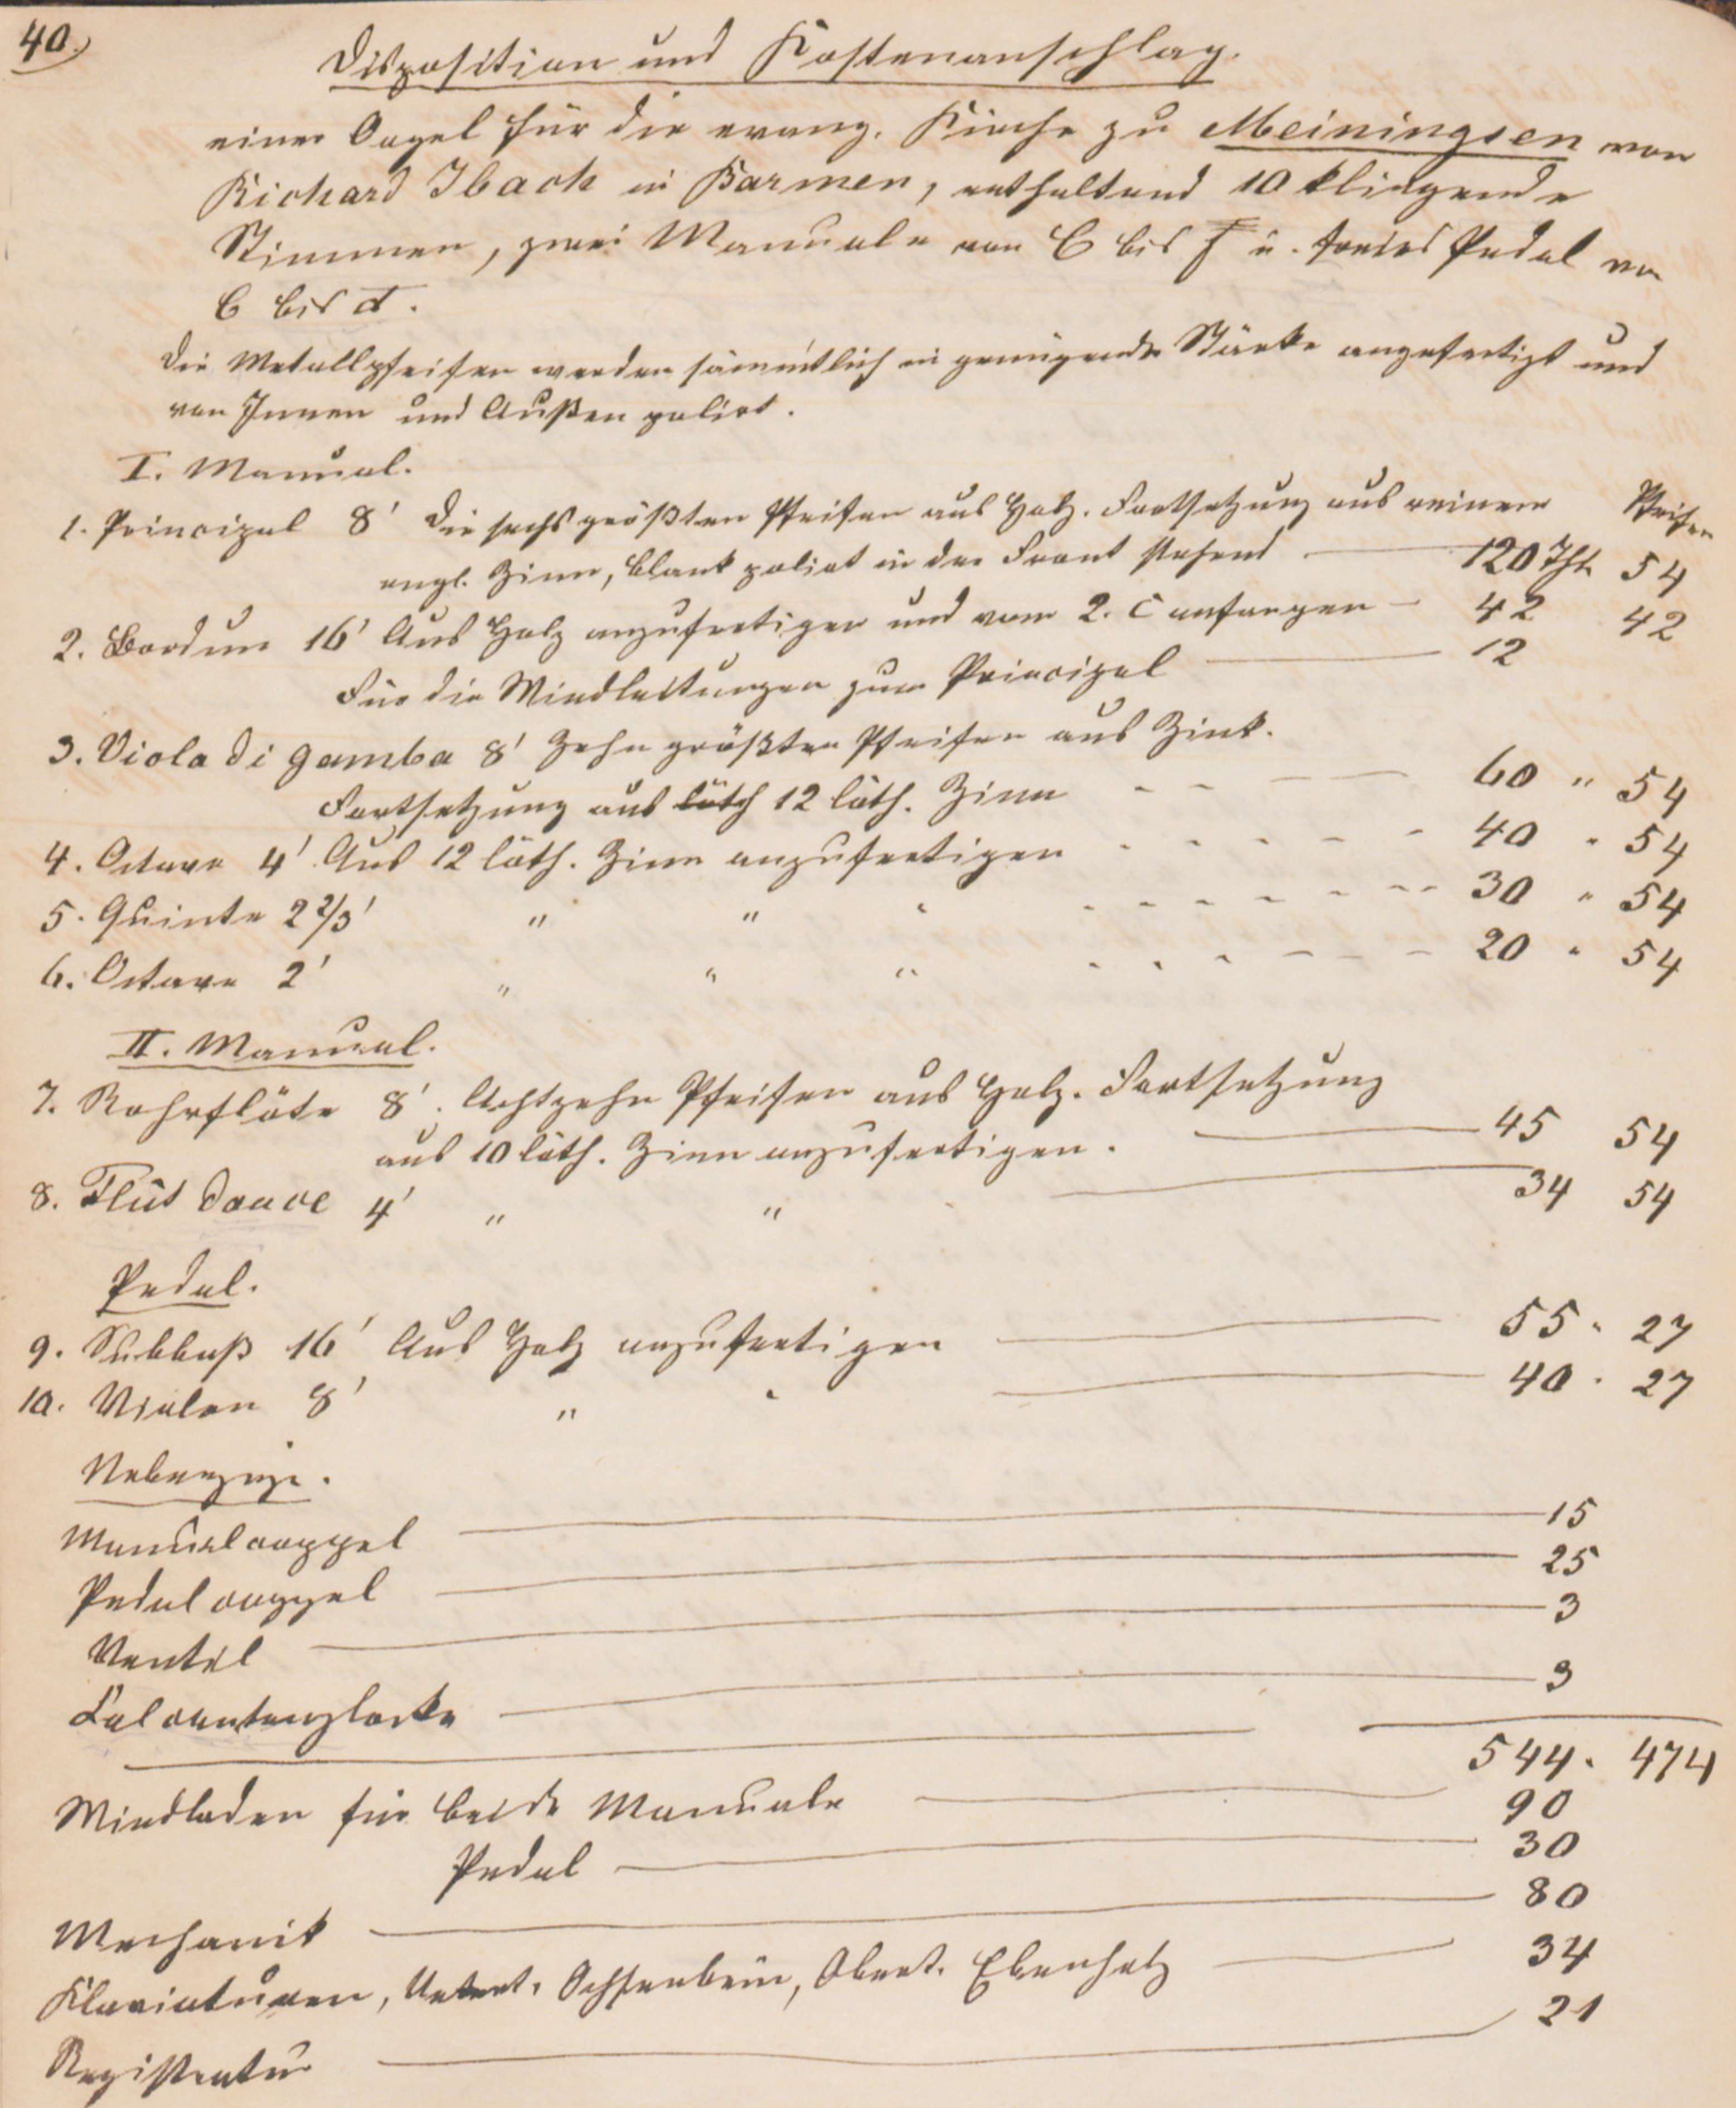 40.)
Disposition und Kostenanschlag.
einer Orgel für die evang. Kirche zu Meiningsen von
Richard Ibach in Barmen, enthaltend 10 klingende
Stimmen, zwei Manuale von C bis f̿ u. freies Pedal von
C bis d̅.
Die Metallpfeifen werden sämmtlich in genügende Stärke angefertigt und
von Innen und Außen polirt.
I. Manual.
Pfeifen
1. Principal 8' Die sechs größten Pfeifen aus Holz. Fortsetzung aus reinem
engl. Zinn, blank polirt in der Front stehend — 120 Thl. 54
2. Bordun 16' Aus Holz anzufertigen und vom 2. C anfangen — 42 42
Für die Windleitungen zum Principal — 12
3. Viola di gamba 8' Zehn größten Pfeifen aus Zink.
Fortsetzung aus löth 12 löth. Zinn - - — — 60 " 54
4. Octave 4' Aus 12 löth. Zinn anzufertigen - - - - - - 40 " 54
5. Quinte 2 2/3' " " " - - - - - - - 30 " 54
6. Octave 2' " " " - - - - - - 20 " 54
II. Manual.
7. Rohrflöte 8'. Achtzehn Pfeifen aus Holz. Fortsetzung
aus 10 löth. Zinn anzufertigen. — 45 54
8. Flût douce 4' " " — 34 54
Pedal.
9. Subbaß 16' Aus Holz anzufertigen — 55 " 27
10. Violon 8' " " — 40 " 27
Nebenzüge.
Manualcoppel — 15
Pedalcoppel — 25
Ventil — 3
Calcantenglocke — 3
544. 474
Windladen für beide Manuale — 90
Pedal — 30
Mechanik — 80
Klaviaturen, Untert. Ochsenbein, Obert. Ebenholz — 34
Registratur — 21